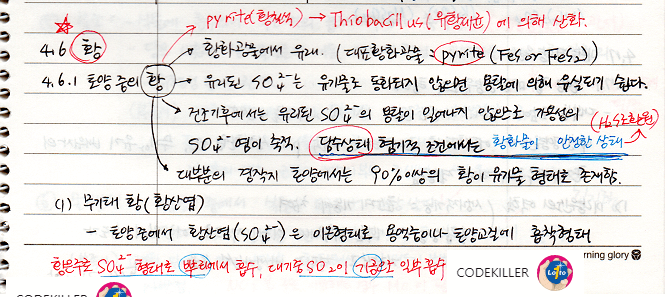 pyrite(황철석) → Thiobacillus(유황세균)에 의해 산화.
4.6 황
· 황화광물에서 유래. (대표황화광물 : pyrite (FeS or FeS2))
4.6.1 토양 중의 황
· 유리된 SO4²⁻는 유기물로 동화되지 않으면 용탈에 의해 유실되기 쉽다.
· 건조기후에서는 유리된 SO4²⁻의 용탈이 일어나지 않으므로 가용성의
(H2S로 환원)
SO4²⁻염이 축적. 담수상태 혐기적 조건에서는 황화물이 안정한 상태
· 대부분의 경작지 토양에서는 90%이상의 황이 유기물 형태로 존재함.
(1) 무기태 황(황산염)
- 토양중에서 황산염(SO4²⁻)은 이온형태로 용액중이나 토양교질에 흡착형태
rning glory
황은주로 SO4²⁻ 형태로 뿌리에서 흡수, 대기중 SO2이 기공으로 일부 흡수
CODEKILLER Lotto
CODEKILLER